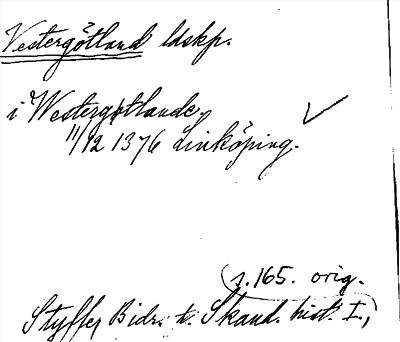 Vestergötland ldskp.
i Westergøtlande,
11/12 1376 Linköping.
(s. 165. orig.
Styffe, Bidr. t. Skand. hist. I,)